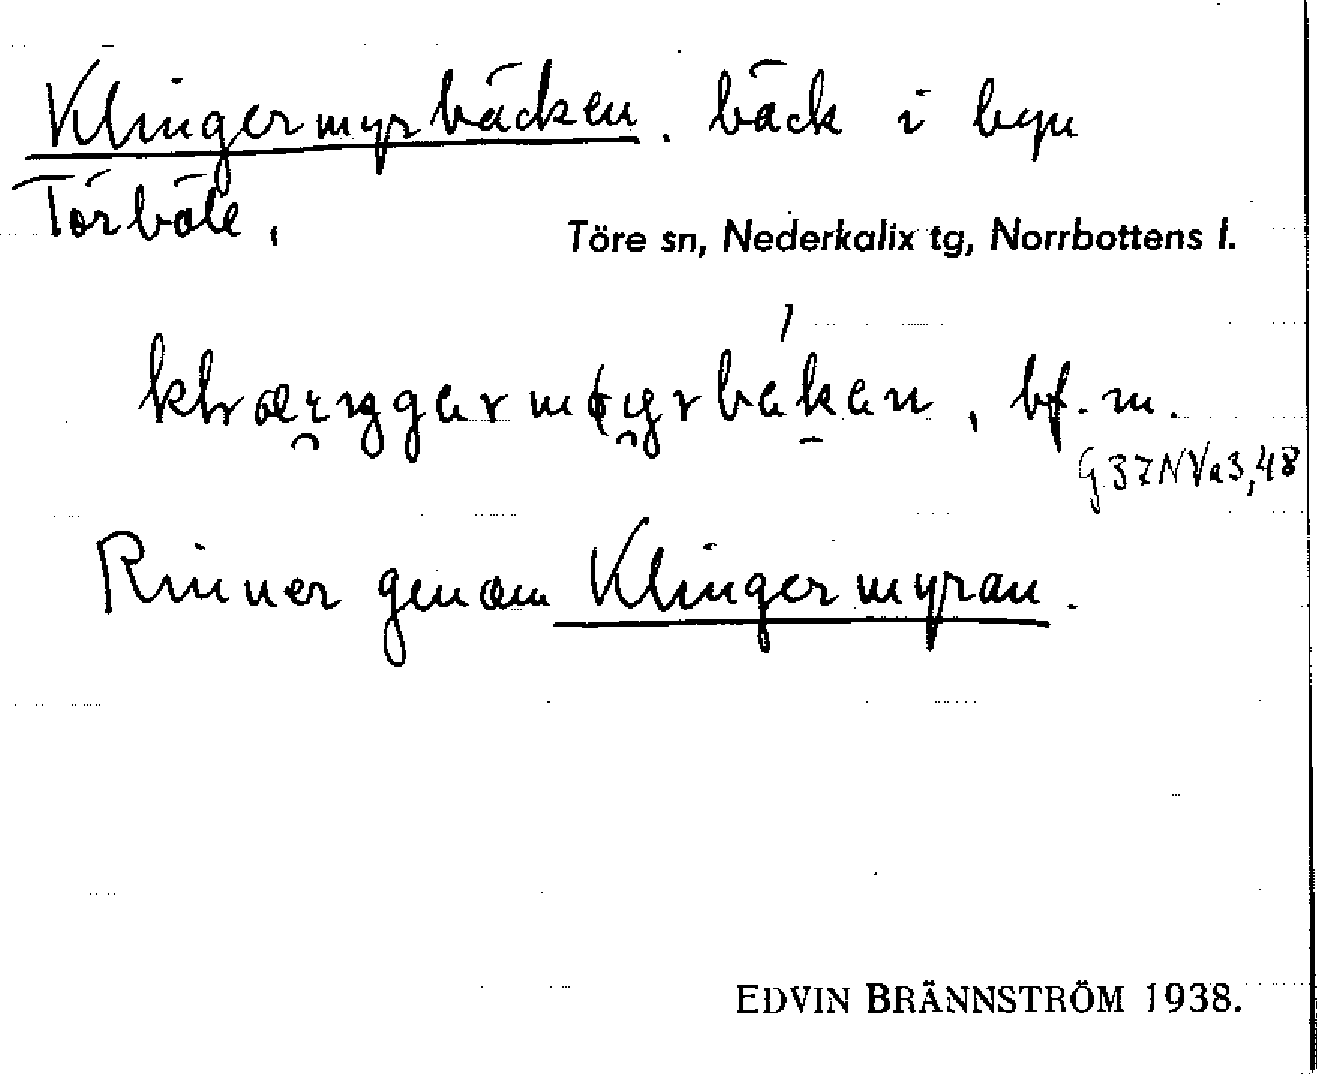 Klingermyrbäcken. bäck i byn
Törböle,
Töre sn, Nederkalix tg, Norrbottens l.
bf. m.
G37NVa3,48
Rinner genom Klingermyran.
EDVIN BRÄNNSTRÖM 1938.